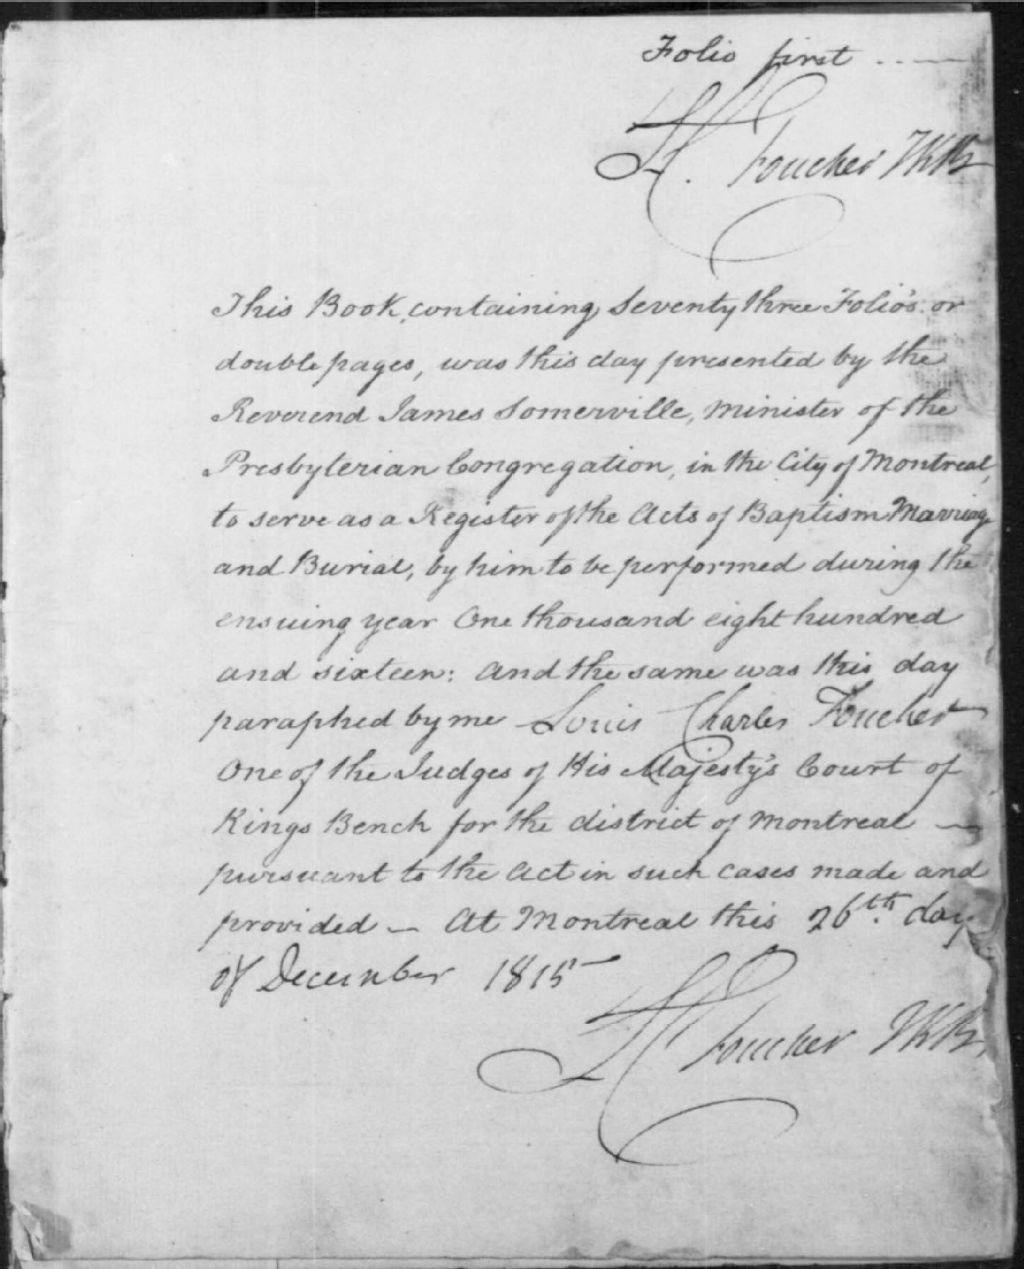 Folio first
L C. Foucher JKB
This Book, containing Seventy three Folio's. or
double pages, was this day presented by the
Reverend James Somerville, Minister of the
Presbyterian Congregation, in the City of Montreal,
to serve as a Register of the Acts of Baptism Marriage
and Burial, by him to be performed during the
ensuing year One thousand eight hundred
and sixteen: And the same was this day
paraphed by me Louis Charles Foucher
One of the Judges of His Majesty's Court of
Kings Bench for the district of Montreal —
pursuant to the Act in such cases made and
provided — At Montreal this 26th. day
of December 1815 —
L C Foucher JKB.